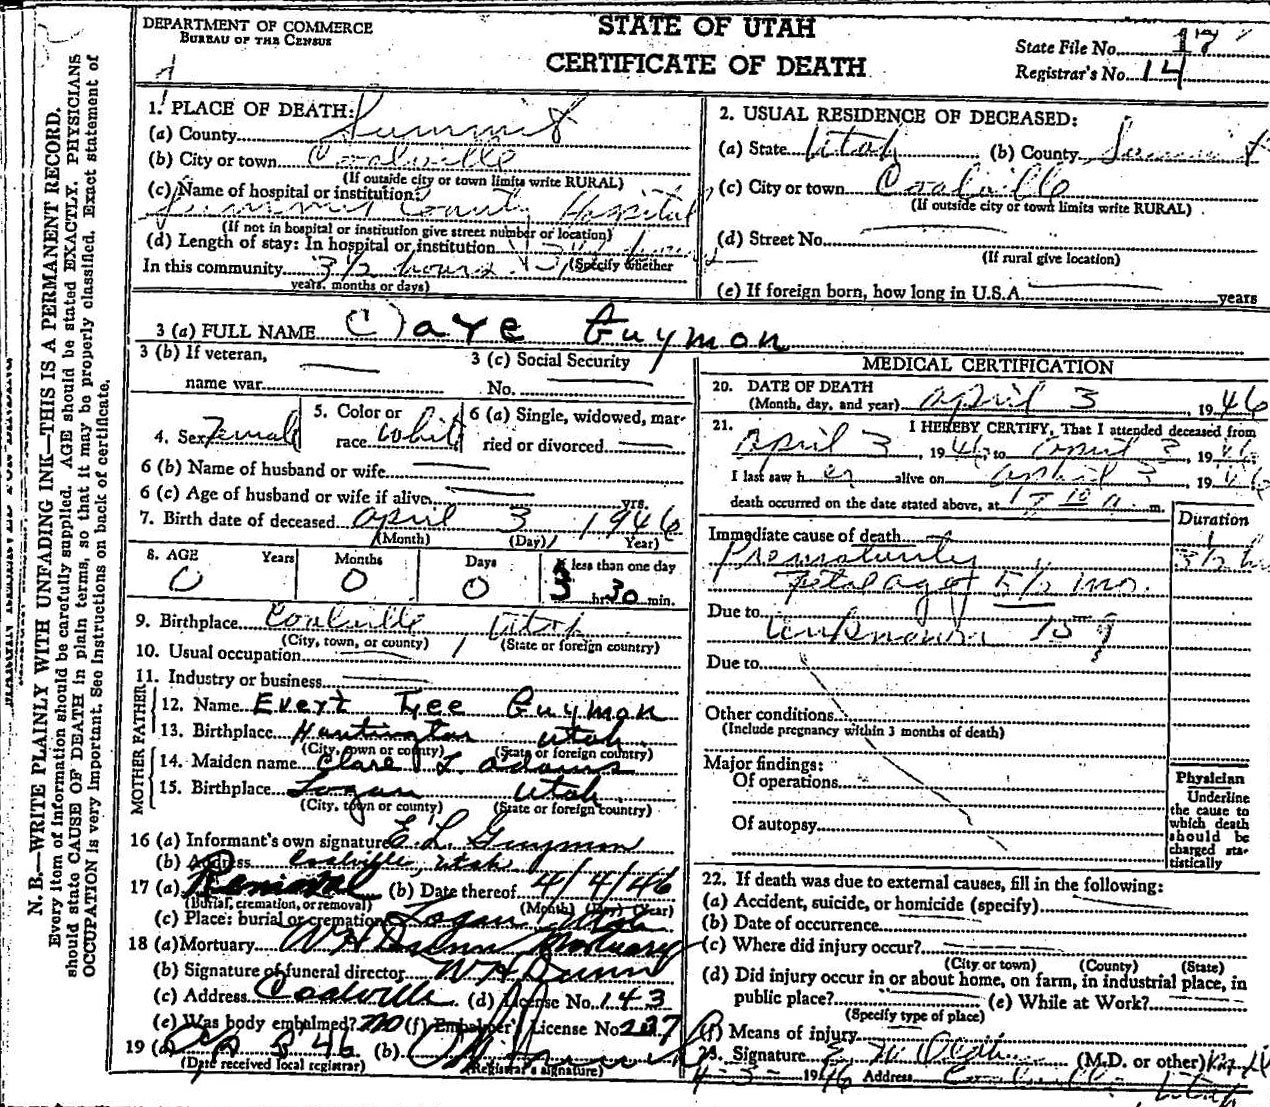 DEPARTMENT OF COMMERCE
BUREAU OF THE CENSUS
STATE OF UTAH
CERTIFICATE OF DEATH
State File No. 17
Registrar's No. 14
N. B.—WRITE PLAINLY WITH UNFADING INK—THIS IS A PERMANENT RECORD.
Every item of information should be carefully supplied. AGE should be stated EXACTLY. PHYSICIANS
should state CAUSE OF DEATH in plain terms, so that it may be properly classified. Exact statement of
OCCUPATION is very important. See Instructions on back of certificate.
1. PLACE OF DEATH:
(a) County Summit
(b) City or town Coalville
(If outside city or town limits write RURAL)
(c) Name of hospital or institution:
Summit County Hospital
(If not in hospital or institution give street number or location)
(d) Length of stay: In hospital or institution 3 1/2 hours
(Specify whether
In this community 3 1/2 hours
years, months or days)
2. USUAL RESIDENCE OF DECEASED:
(a) State Utah (b) County Summit
(c) City or town Coalville
(If outside city or town limits write RURAL)
(d) Street No.
(If rural give location)
(e) If foreign born, how long in U.S.A. years
3 (a) FULL NAME Claye Guymon
3 (b) If veteran,
name war
3 (c) Social Security
No.
4. Sex Female
5. Color or
race White
6 (a) Single, widowed, mar-
ried or divorced
6 (b) Name of husband or wife
6 (c) Age of husband or wife if alive yrs.
7. Birth date of deceased April 3 1946
(Month) (Day) (Year)
8. AGE Years Months Days If less than one day
0 0 0 3 hr. 30 min.
9. Birthplace Coalville, Utah
(City, town, or county) (State or foreign country)
10. Usual occupation
11. Industry or business
FATHER
12. Name Evert Lee Guymon
13. Birthplace Huntington Utah
(City, town or county) (State or foreign country)
MOTHER
14. Maiden name Clare L. Adams
15. Birthplace Logan Utah
(City, town or county) (State or foreign country)
16 (a) Informant's own signature E. L. Guymon
(b) Address Coalville, Utah
17 (a) Removal (b) Date thereof 4/4/46
(Burial, cremation, or removal) (Month) (Day) (Year)
(c) Place: burial or cremation Logan, Utah
18 (a) Mortuary W H Dunn Mortuary
(b) Signature of funeral director W H Dunn
(c) Address Coalville (d) License No. 143
(e) Was body embalmed? no (f) Embalmer's License No. 207
19 (a) '46 (b)
(Date received local registrar) (Registrar's signature)
MEDICAL CERTIFICATION
20. DATE OF DEATH
(Month, day, and year) April 3, 1946
21. I HEREBY CERTIFY, That I attended deceased from
April 3, 1946 to April 3, 1946
I last saw her alive on April 3, 1946
death occurred on the date stated above, at m.
Duration
Immediate cause of death
Prematurity 3 1/2 hr
Fetal age 5 1/2 mo.
Due to
Unknown 159
Due to
Other conditions
(Include pregnancy within 3 months of death)
Major findings:
Of operations
Of autopsy
Physician
Underline
the cause to
which death
should be
charged sta-
tistically
22. If death was due to external causes, fill in the following:
(a) Accident, suicide, or homicide (specify)
(b) Date of occurrence
(c) Where did injury occur?
(City or town) (County) (State)
(d) Did injury occur in or about home, on farm, in industrial place, in
public place? (e) While at Work?
(Specify type of place)
(f) Means of injury
23. Signature (M.D. or other)
4-3- 1946 Address Coalville, Utah